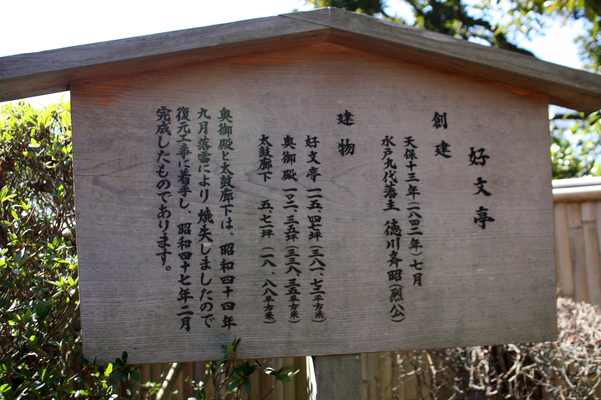 好文亭
創建
天保十三年(一八四二年)七月
水戸九代藩主 徳川斉昭(烈公)
建物
好文亭 一一五、四七坪(三八一、七二平方米)
奥御殿 一〇二、三五坪(三三八、三五平方米)
太鼓廊下 五、七一坪(一八、八八平方米)
奥御殿と太鼓廊下は、昭和四十四年
九月落雷により焼失しましたので
復元工事に着手し、昭和四十七年二月
完成したものであります。